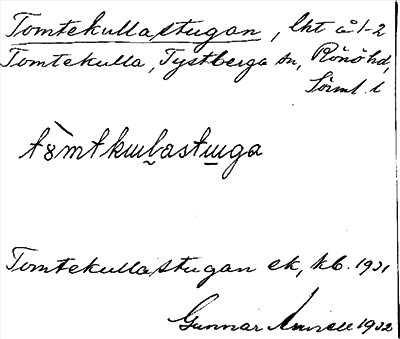 Tomtekullastugan, lht å 1-2
Tomtekulla, Tystberga sn, Rönö hd,
Sörml. l
Tomtekullastugan ek, kb. 1931
Gunnar 1932